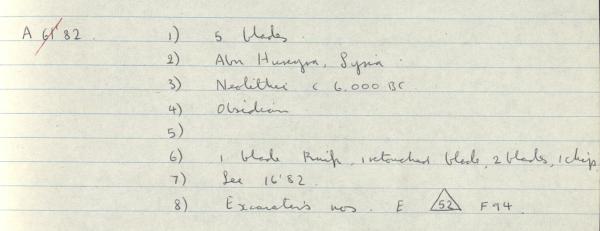 A 61' 82 1) 5 blades.
2) Abu Hureyra, Syria.
3) Neolithic c 6,000 BC
4) Obsidian
5)
6) 1 blade knife, 1 retouched blade, 2 blades, 1 chip
7) See 16'82.
8) Excavater's nos. E 52 F94